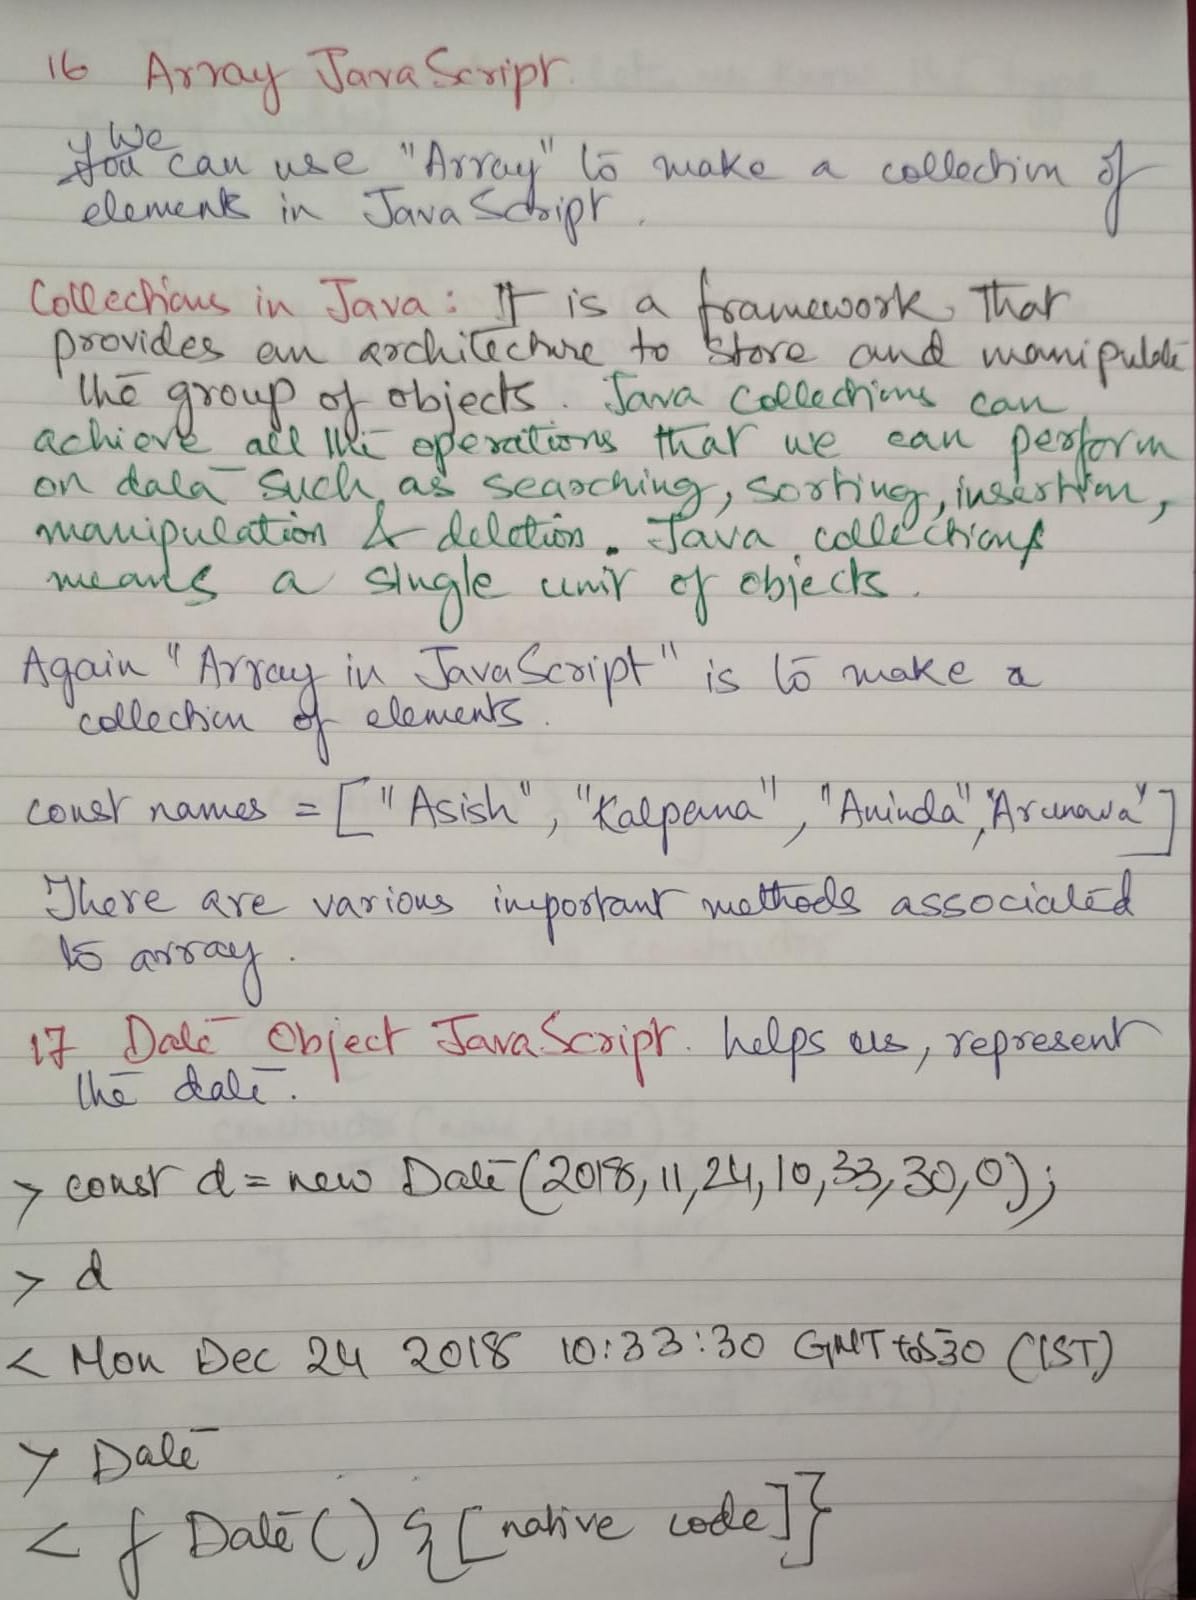 16 Array JavaScript.
We
You can use "Array" to make a collection of
elements in JavaScript.
Collections in Java: It is a framework that
provides an architecture to store and manipulate
the group of objects. Java Collections can
achieve all the operations that we can perform
on data such as searching, sorting, insertion,
manipulation & deletion. Java collections
means a single unit of objects.
Again "Array in JavaScript" is to make a
collection of elements.
const names = ["Asish", "Kalpana", "Aninda", "Arunava"]
There are various important methods associated
to array.
17 Date Object JavaScript. helps us, represent
the date.
> const d = new Date(2018, 11, 24, 10, 33, 30, 0);
> d
< Mon Dec 24 2018 10:33:30 GMT +0530 (IST)
> Date
< f Date() {[native code]}